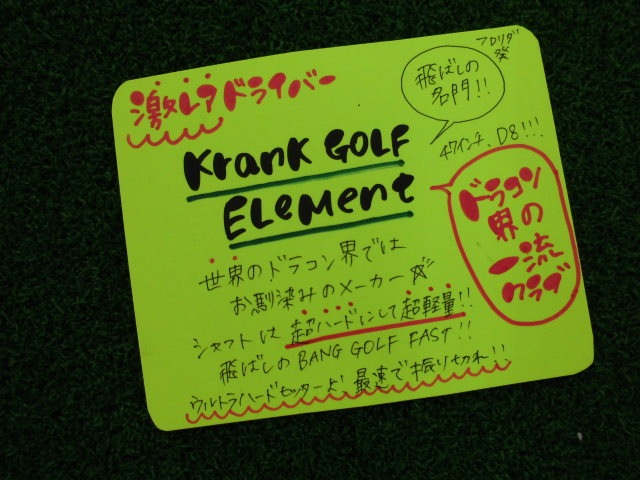 激レアドライバー
フロリダ
発
飛ばしの
名門!!
KranK GOLF
ELeMent
47インチ、D8!!!
ドラコン
界の
一流
クラブ
世界のドラコン界では
お馴染みのメーカー☆
シャフトは超ハードにして超軽量!!
飛ばしのBANG GOLF FAST!!
ウルトラハードヒッターよ 最速で振り切れ!!